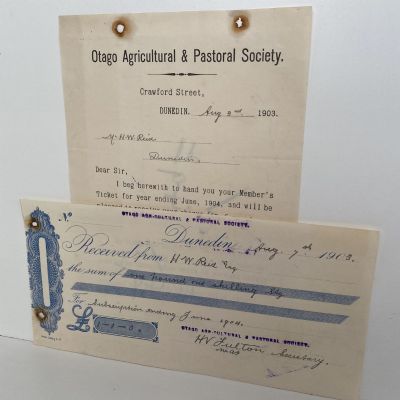 Otago Agricultural & Pastoral Society.
Crawford Street,
DUNEDIN. Aug 3rd 1903.
Mr H.W. Reid
Dunedin
Dear Sir,
I beg herewith to hand you your Member's
Ticket for year ending June, 1904, and will be
No.
OTAGO AGRICULTURAL & PASTORAL SOCIETY.
Dunedin Aug 7th 1903.
Received from H W Reid Esq
the sum of one pound one shilling Stg
For Subscription ending June 1904.
£ 1-1-0.
OTAGO AGRICULTURAL & PASTORAL SOCIETY.
HV Fulton Secretary.